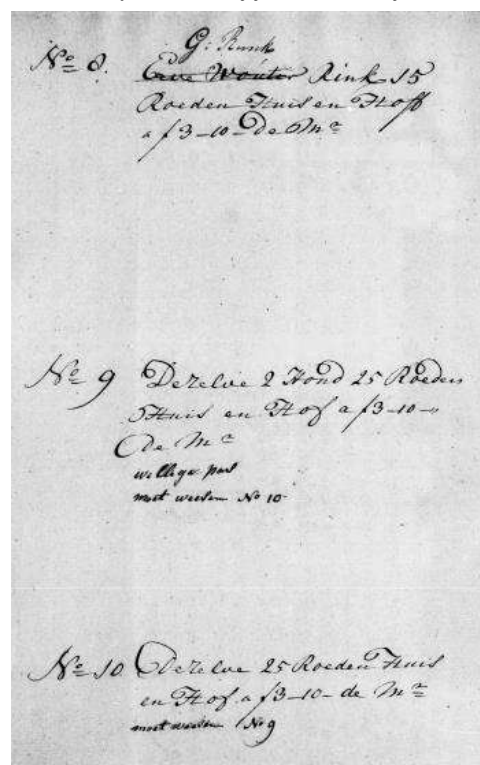 G: Runk
No 8. Erve Wouter Rink 15
Roeden Huis en Hoff
a f3-10- De Mr
No 9 Dezelve 2 Hond 25 Roeden
Huis en Hof a f3-10-"
De Mr
moet weesen No 10
No 10 Dezelve 25 Roeden Huis
en Hof a f3-10- de Mr
moet weesen No 9